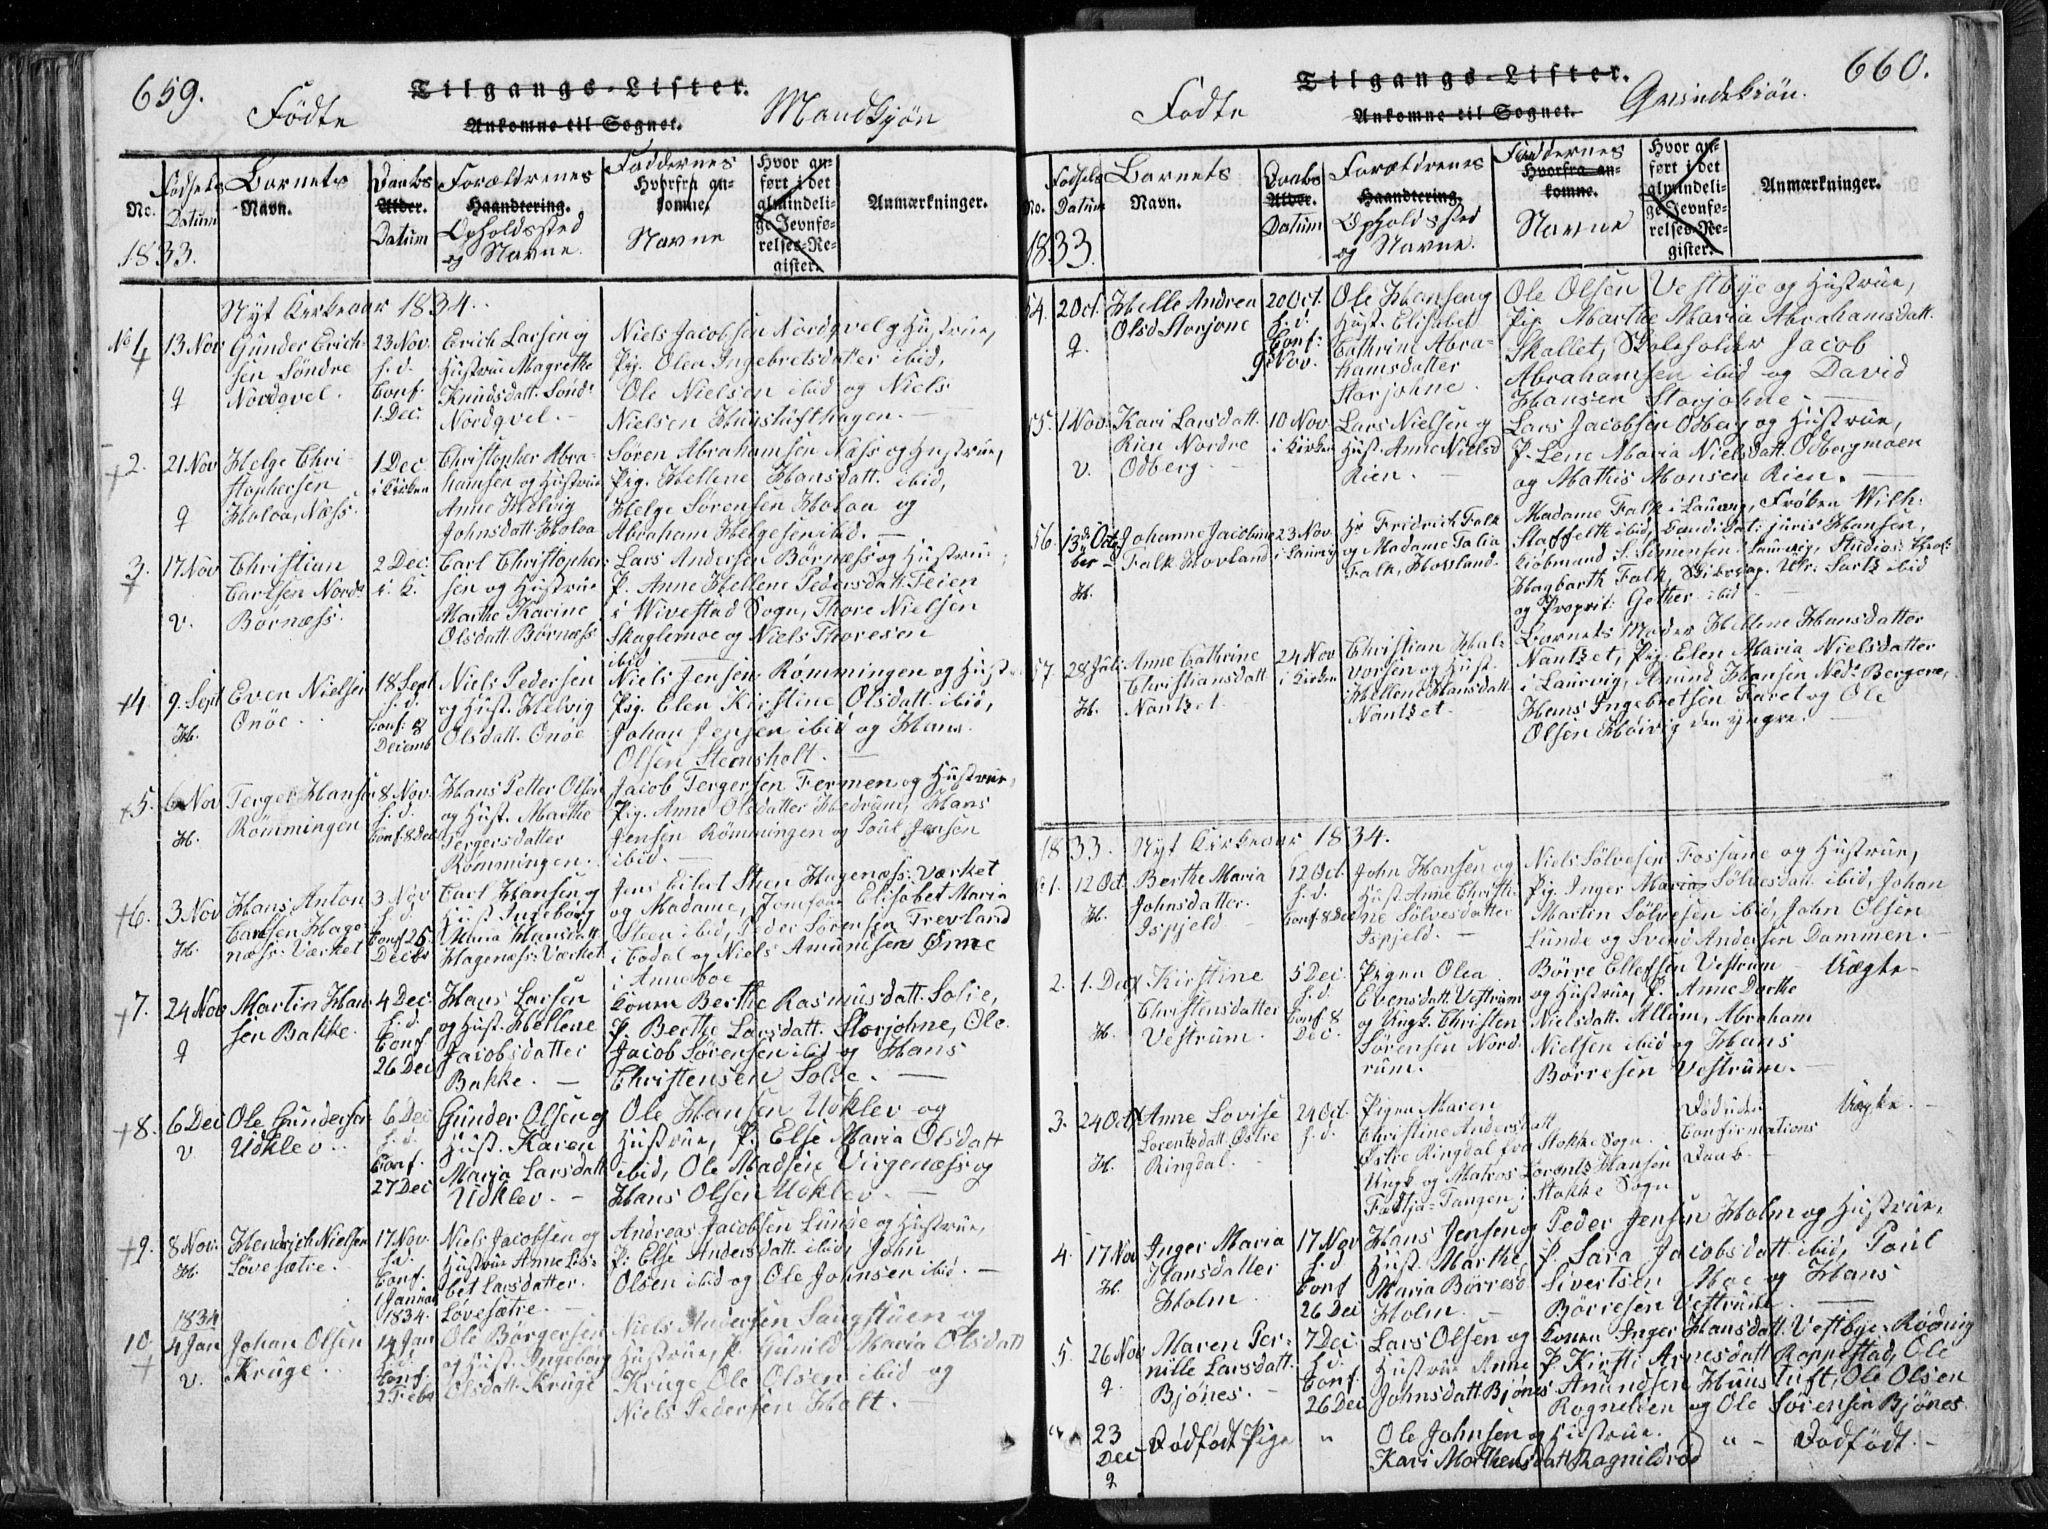 659.
Tilgangs-Lister.
Fødte
Mandkjøn
Ankomne til Sognet.
No.
Fødsels Datum
Barnets Navn.
Daabs Alder. Datum
Forældrenes Haandtering. Opholdssted og Navne.
Faddernes Hvorfra ankomne. Navne
Hvor anført i det almindelige Jevnførelses-Register.
Anmærkninger.
1833.
Nyt Kirkeaar 1834.
No 1
13 Nov
Gunder Erich-
sen Søndre
Nordqvel.
23 Nov.
h. d.
Conf.
1 Dec.
Erich Larsen og
Hustrue Magrethe
Knudsdatt. Sønd:
Nordqvel. -
Niels Jacobsen Nordqvel og Hustrue,
Pig. Olea Ingebretsdatter ibid,
Ole Nielsen ibid og Niels
Nielsen Hunstufthagen. -
2.
21 Nov
Helge Chri-
stophersen
Holoa, Næss
1 Dec.
i Kirken
Christopher Abra-
hamsen og Hustrue
Anne Helvig
Johnsdatt. Holoa
Søren Abrahamsen Næss og Hustrue,
Pig. Hellene Hansdatt. ibid,
Helge Sørensen Holoa og
Abraham Helgesen ibid. -
3.
17 Nov
v.
Christian
Carlsen Nordr
Børnæss.
2 Dec.
i. K.
Carl Christopher-
sen og Hustrue
Marthe Karine
Olsdatt. Børnæss
Lars Andersen Børnæss og Hustrue,
P. Anne Hellene Pedersdatt. Teien
i Wivestad Sogn, Thore Nielsen
Skaglemoe og Niels Thoresen
ibid
4.
9 Sept
H.
Even Nielsen
Onøe.
18 Sept
h. d.
Conf. 8
Decemb
Niels Pedersen
og Hust. Helvig
Olsdatt. Onøe
Niels Jensen Rømmingen og Hust
Pig. Elen Kirstine Olsdatt. ibid,
Johan Jensen ibid og Hans
Olsen Steensholt. -
5.
6 Nov
H.
Terger Hansen
Rømmingen
8 Nov.
h. d.
Conf. 8 Dec
Hans Petter Olsen
og Hust. Marthe
Tergersdatter
Rømmingen.
Jacob Tergersen Fermen og Hustrue,
Pig. Anne Olsdatter Hedrum, Hans
Jensen Rømmingen og Poul Jensen
ibid. -
6.
3 Nov
H.
Hans Anton
Carlsen Hage-
næss-Værket
3 Nov
h. d.
Conf 26
Decbr
Carl Hansen og
Hust Ingeborg
Maria Hansdatt.
Hagenæss-Værket
Jens Eilert Steen Hagenæss-Værket
og Madame, Jomfrue Elisabet Maria
Steen ibid, Peder Sørensen Trevland
i Lodal og Niels Amundsen Ønne
i Anneboe
7.
24 Nov
Martin Han-
sen Bakke.
4 Dec.
h. d.
Conf.
26 Dec
Hans Larsen
og Hust. Hellene
Jacobsdatter
Bakke. -
Konen Berthe Rasmusdatt. Solie,
P. Berthe Larsdatt. Storjohne, Ole
Jacob Sørensen ibid og Hans
Christensen Solie. -
8.
6 Dec
v
Ole Gundersen
Udklev.
6 Dec
h. d.
Conf.
27 Dec
Gunder Olsen og
Hust. Karen
Maria Larsdatt.
Udklev. -
Ole Hansen Udklev og
Hustrue, P. Else Maria Olsdatt
ibid, Ole Madsen Virgenæss og
Hans Olsen Udklev. -
9.
8 Nov.
H.
Hendrich Nielsen
Løvesætre.
17 Nov.
h.d.
Conf.
1 Januar
1834.
Niels Jacobsen og
Hustrue Anne Lis-
bet Larsdatter.
Løvesætre. -
Andreas Jacobsen Lunde og Hustrue,
P. Else Andersdatt. ibid, John
Olsen ibid og Ole Johnsen ibid. -
1834
10.
4 Jan
v.
Johan Olsen
Kruge.
14 Jan
h.d.
Conf.
2 Febr
Ole Børgersen
og Hust. Ingeborg
Olsdatt. Kruge
Niels Andersen Langstuen og
Hustrue, P. Gunild Maria Olsdatt
Kruge Ole Olsen ibid og
Niels Pedersen Holt. -
660.
Tilgangs-Lister.
Fødte
Qvindekiøn.
Ankomne til Sognet.
No.
Fødsels Datum
Barnets Navn.
Daabs Alder. Datum
Forældrenes Haandtering. Opholdssted og Navne.
Faddernes Hvorfra ankomne. Navne
Hvor anført i det almindelige Jevnførelses-Register.
Anmærkninger.
1833.
54.
20 Oct.
Helle Andrea
Olsd Storjone
20 Oct.
h. d.
Conf:
9 Nov.
Ole Hansen og
Hust. Elisabet
Cathrine Abra-
hamsdatter
Storjohne.
Ole Olsen Vestbye og Hustrue,
Pig. Marthe Maria Abrahamsdatt.
Skallet, Skoleholder Jacob
Abrahamsen ibid og David
Hansen Storjohne. -
55.
1 Nov.
v.
Kari Larsdatt.
Rien Nordre
Odberg. -
10 Nov
i Kirken
Lars Nielsen og
Hust. Anne Nielsd
Rien. -
Lars Jacobsen Odberg og Hustrue,
P. Lene Maria Nielsdatt. Odbergmoen
og Mathis Monsen Rien. -
56.
13de Octo
ber
H.
Johanne Jacobine
Falk Hovland
23 Nov
i Laurvig
Hr Fredrich Falk
og Madame Talia
Falk, Hovland.
Madame Falk i Laurvig, Frøken Wilh:
Staffeldt ibid, Candidat: juris Hansen,
Kiøbmand S. Sørensen Laurvig, Studios:
Hagbarth Falk, ibid
og Proprit: Gether ibid -
57.
28 Juli
H.
Anne Cathrine
Christiansdatt
Nantzet.
24 Nov
i Kirken
Christian Hal-
vorsen og Hust.
Hellene Hansdatt.
Nantzet. -
Barnets Moder Hellene Hansdatter
Nantzet, Pig. Elen Maria Nielsdatter
i Laurvig, Amund Hansen Nedr Bergene,
Hans Ingebretsen Faret og Ole
Olsen Høivig den yngre. -
1833. Nyt Kirkeaar 1834.
No 1.
12 Oct
H.
Berthe Maria
Johnsdatter.
Ispjeld
12 Oct.
h. d.
Conf. 8 Dec
John Hansen og
Hust. Anne Christi-
ne Sølvesdatter
Ispjeld. -
Niels Sølvesen Fossane og Hustrue,
Pig. Inger Maria Sølvesdatt. ibid, Johan
Martin Sølvesen ibid, John Olsen
Lunde og Svend Andersen Dammen. -
2.
1. Dec
H.
Kirstine
Christensdatter
Vestrum.
5 Dec.
h. d.
Conf 8
Dec.
Pigen Olea
Evensdatt. Vestrum
og Ungk. Christen
Sørensen Nord-
rum. -
Børre Ellefsen Vestrum
og Hustrue, P. Anne Dorthe
Nielsdatt. Allum, Abraham
Nielsen ibid og Hans
Børresen Vestrum. -
Uægte -
3.
24 Oct
H.
Anne Lovise
Lorentsdatt. Østre
Ringdal. -
24 Oct.
h. d.
Pigen Maren
Christine Andersdatt
Østre Ringdal fra Stokke Sogn.
Ungk og Matros Lorentz Hansen
Tangen i Stokke Sogn
Død uden
Confirmations
Daab. -
Uægte. -
4.
17 Nov
H.
Inger Maria
Hansdatter
Holm.
17 Nov
h. d
Conf
26 Dec
Hans Jensen og
Hust. Marthe
Maria Børresd
Holm. -
Peder Jensen Holm og Hustrue,
P. Sara Jacobsdatt ibid, Poul
Sivertsen Moe og Hans
Børresen Vestrum. -
5.
26 Nov
Maren Per-
nille Larsdatt.
Bjønes. -
7 Dec
h.d.
Conf.
26 Dec
Lars Olsen og
Hustrue Anne
Johnsdatt. Bjønes
Konen Inger Hansdatt. Vestbye-Rødnig
P. Kirsti Arnesdatt Roppestad, Ole
Amundsen Hunstuft, Ole Olsen
Rognelien og Ole Sørensen Bjønes
23
Dec
Dødfødt Pige
"
Ole Johnsen og Hustrue.
Kari Mathensdatt Ragnildrød
" - Dødfødt. -